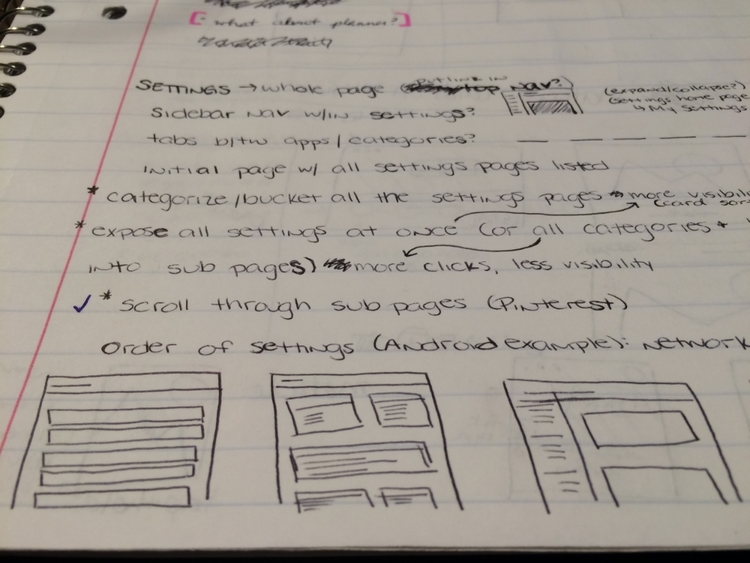 [· what about planner?]
SETTINGS → whole page (put link in top NAV?)
(expand/collapse?)
(settings home page
↳ My settings
Sidebar NAV w/in settings?
tabs b/tw apps/categories?
Initial page w/ all settings pages listed
* categorize/bucket all the settings pages * more visibili
(card sor
* expose all settings at once (or all categories *
into sub pages) more clicks, less visibility
✓ * scroll through sub pages (Pinterest)
Order of settings (Android example): Network